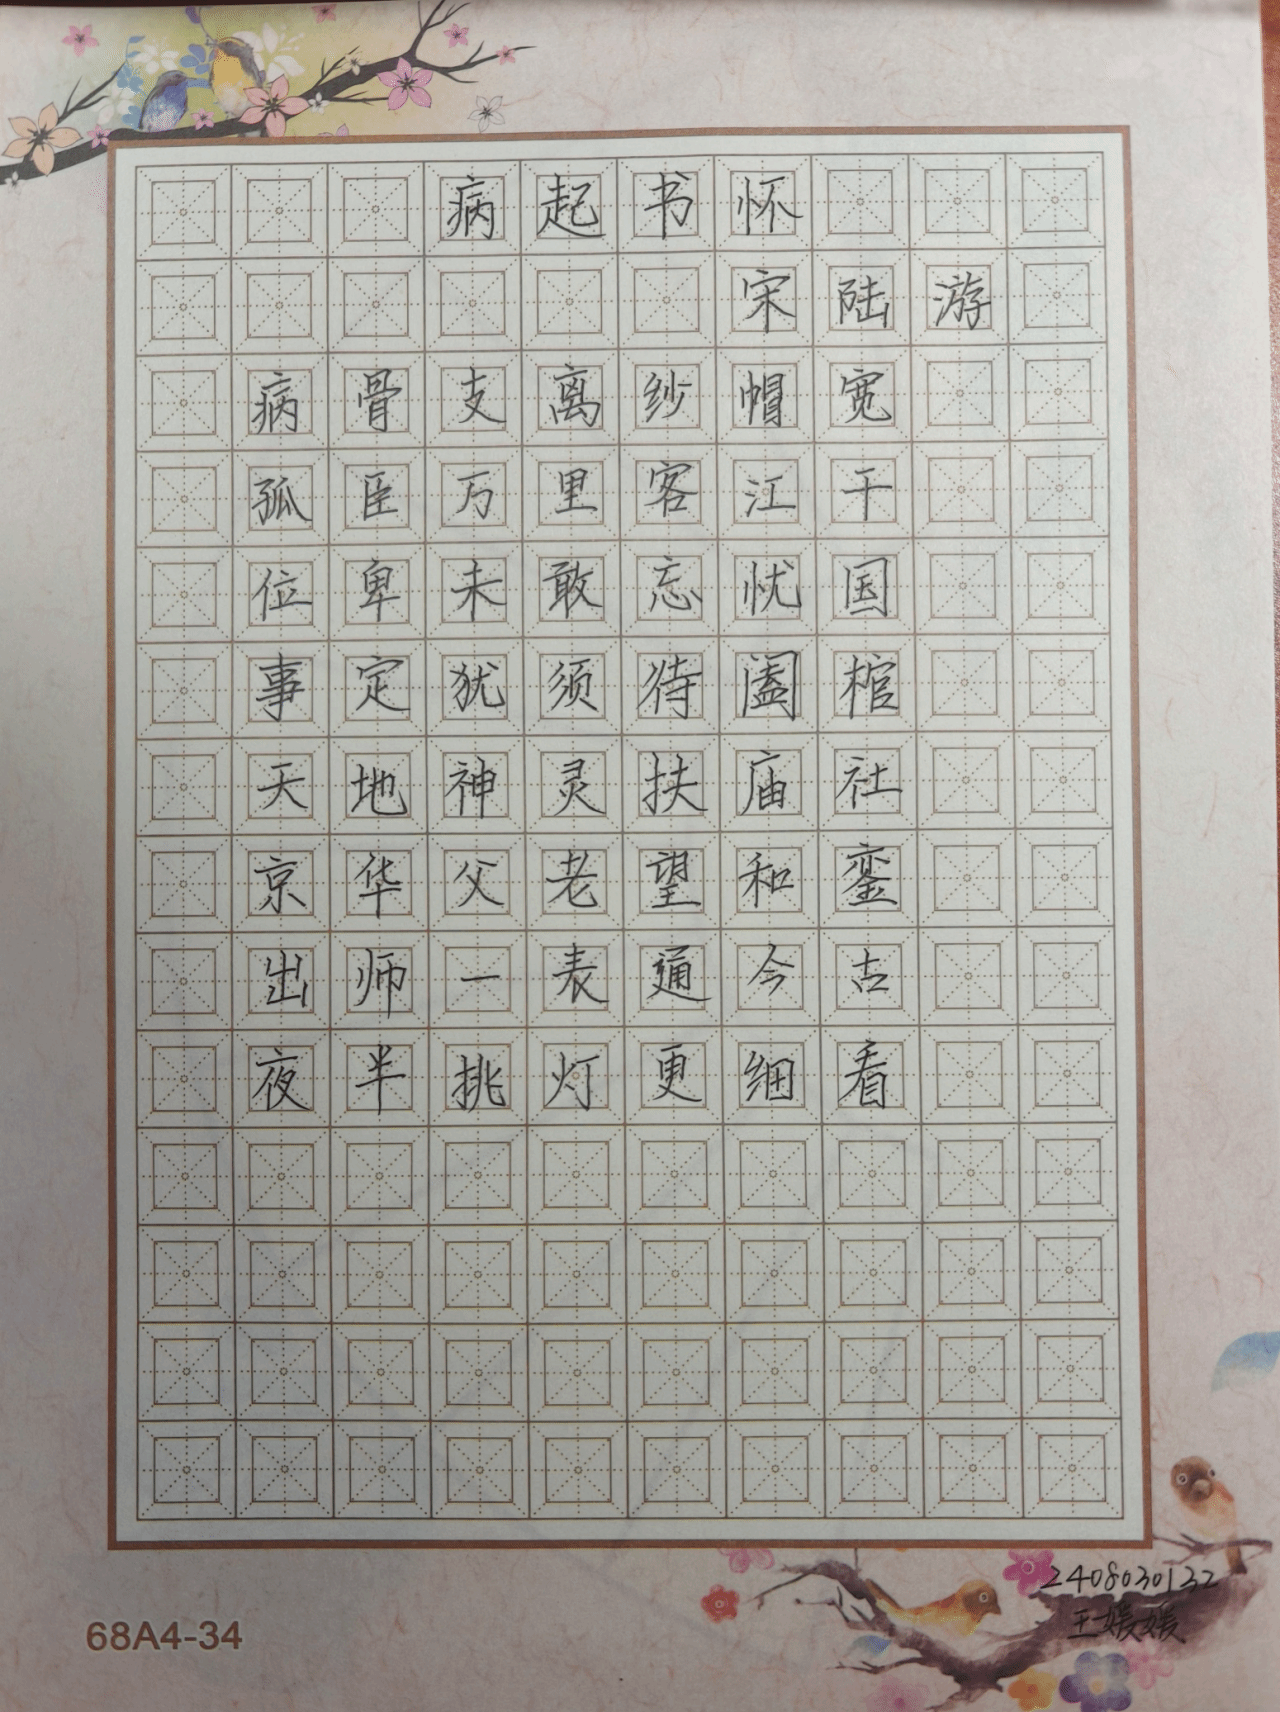 病起书怀
宋陆游
病骨支离纱帽宽
孤臣万里客江干
位卑未敢忘忧国
事定犹须待阖棺
天地神灵扶庙社
京华父老望和銮
出师一表通今古
夜半挑灯更细看
2408030132
王媛媛
68A4-34